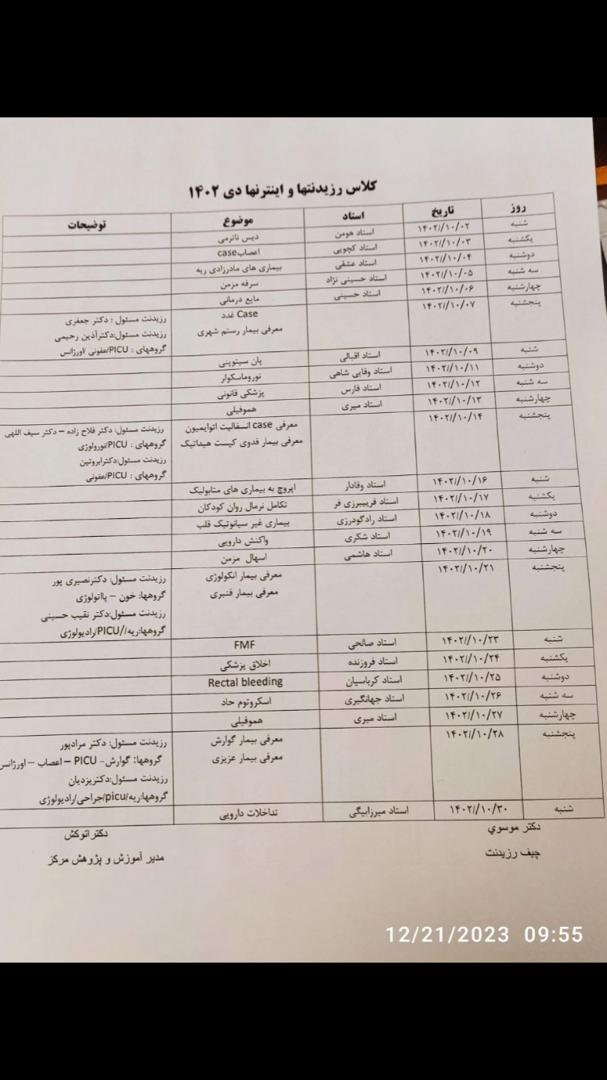 کلاس رزیدنتها و اینترنها دی ۱۴۰۲
روز تاریخ استاد موضوع توضیحات
شنبه ۱۴۰۲//۱۰/۰۲ استاد هومن دیس ناترمی
یکشنبه ۱۴۰۲//۱۰/۰۳ استاد کچویی اعصابcase
دوشنبه ۱۴۰۲//۱۰/۰۴ استاد عشقی بیماری های مادرزادی ریه
سه شنبه ۱۴۰۲//۱۰/۰۵ استاد حسینی نژاد سرفه مزمن
چهارشنبه ۱۴۰۲//۱۰/۰۶ استاد حسینی مایع درمانی
پنجشنبه ۱۴۰۲//۱۰/۰۷ Case غدد رزیدنت مسئول : دکتر جعفری
معرفی بیمار رستم شهری رزیدنت مسئول:دکترآذین رحیمی
گروههای : PICU/عفونی /اورژانس
شنبه ۱۴۰۲//۱۰/۰۹ استاد اقبالی پان سیتوپنی
دوشنبه ۱۴۰۲//۱۰/۱۱ استاد وفایی شاهی نوروماسکولر
سه شنبه ۱۴۰۲//۱۰/۱۲ استاد فارس پزشکی قانونی
چهارشنبه ۱۴۰۲//۱۰/۱۳ استاد میری هموفیلی
پنجشنبه ۱۴۰۲//۱۰/۱۴ معرفی case انسفالیت اتوایمیون رزیدنت مسئول: دکتر فلاح زاده – دکتر سیف اللهی
معرفی بیمار فدوی کیست هیداتیک گروههای : PICU/نورولوژی
رزیدنت مسئول:دکترابروتین
گروههای : PICU/عفونی
شنبه ۱۴۰۲//۱۰/۱۶ استاد وفادار اپروچ به بیماری های متابولیک
یکشنبه ۱۴۰۲//۱۰/۱۷ استاد فریبرزی فر تکامل نرمال روان کودکان
دوشنبه ۱۴۰۲//۱۰/۱۸ استاد رادگودرزی بیماری غیر سیانوتیک قلب
سه شنبه ۱۴۰۲//۱۰/۱۹ استاد شکری واکنش دارویی
چهارشنبه ۱۴۰۲//۱۰/۲۰ استاد هاشمی اسهال مزمن
پنجشنبه ۱۴۰۲//۱۰/۲۱ معرفی بیمار انکولوژی رزیدنت مسئول: دکترنصیری پور
معرفی بیمار قنبری گروهها: خون – پااتولوژی
رزیدنت مسئول:دکتر نقیب حسینی
گروهها:ریه//PICU/رادیولوژی
شنبه ۱۴۰۲//۱۰/۲۳ استاد صالحی FMF
یکشنبه ۱۴۰۲//۱۰/۲۴ استاد فروزنده اخلاق پزشکی
دوشنبه ۱۴۰۲//۱۰/۲۵ استاد کرباسیان Rectal bleeding
سه شنبه ۱۴۰۲//۱۰/۲۶ استاد جهانگیری اسکروتوم حاد
چهارشنبه ۱۴۰۲//۱۰/۲۷ استاد میری هموفیلی
پنجشنبه ۱۴۰۲//۱۰/۲۸ معرفی بیمار گوارش رزیدنت مسئول: دکتر مرادپور
معرفی بیمار عزیزی گروهها: گوارش- PICU – اعصاب – اورژانس
رزیدنت مسئول:دکتریزدیان
گروهها:ریه/picu/جراحی/رادیولوژی
شنبه ۱۴۰۲//۱۰/۳۰ استاد میرزابیگی تداخلات دارویی
دکتر موسوی دکتراتوکش
چیف رزیدنت مدیر آموزش و پژوهش مرکز
12/21/2023 09:55